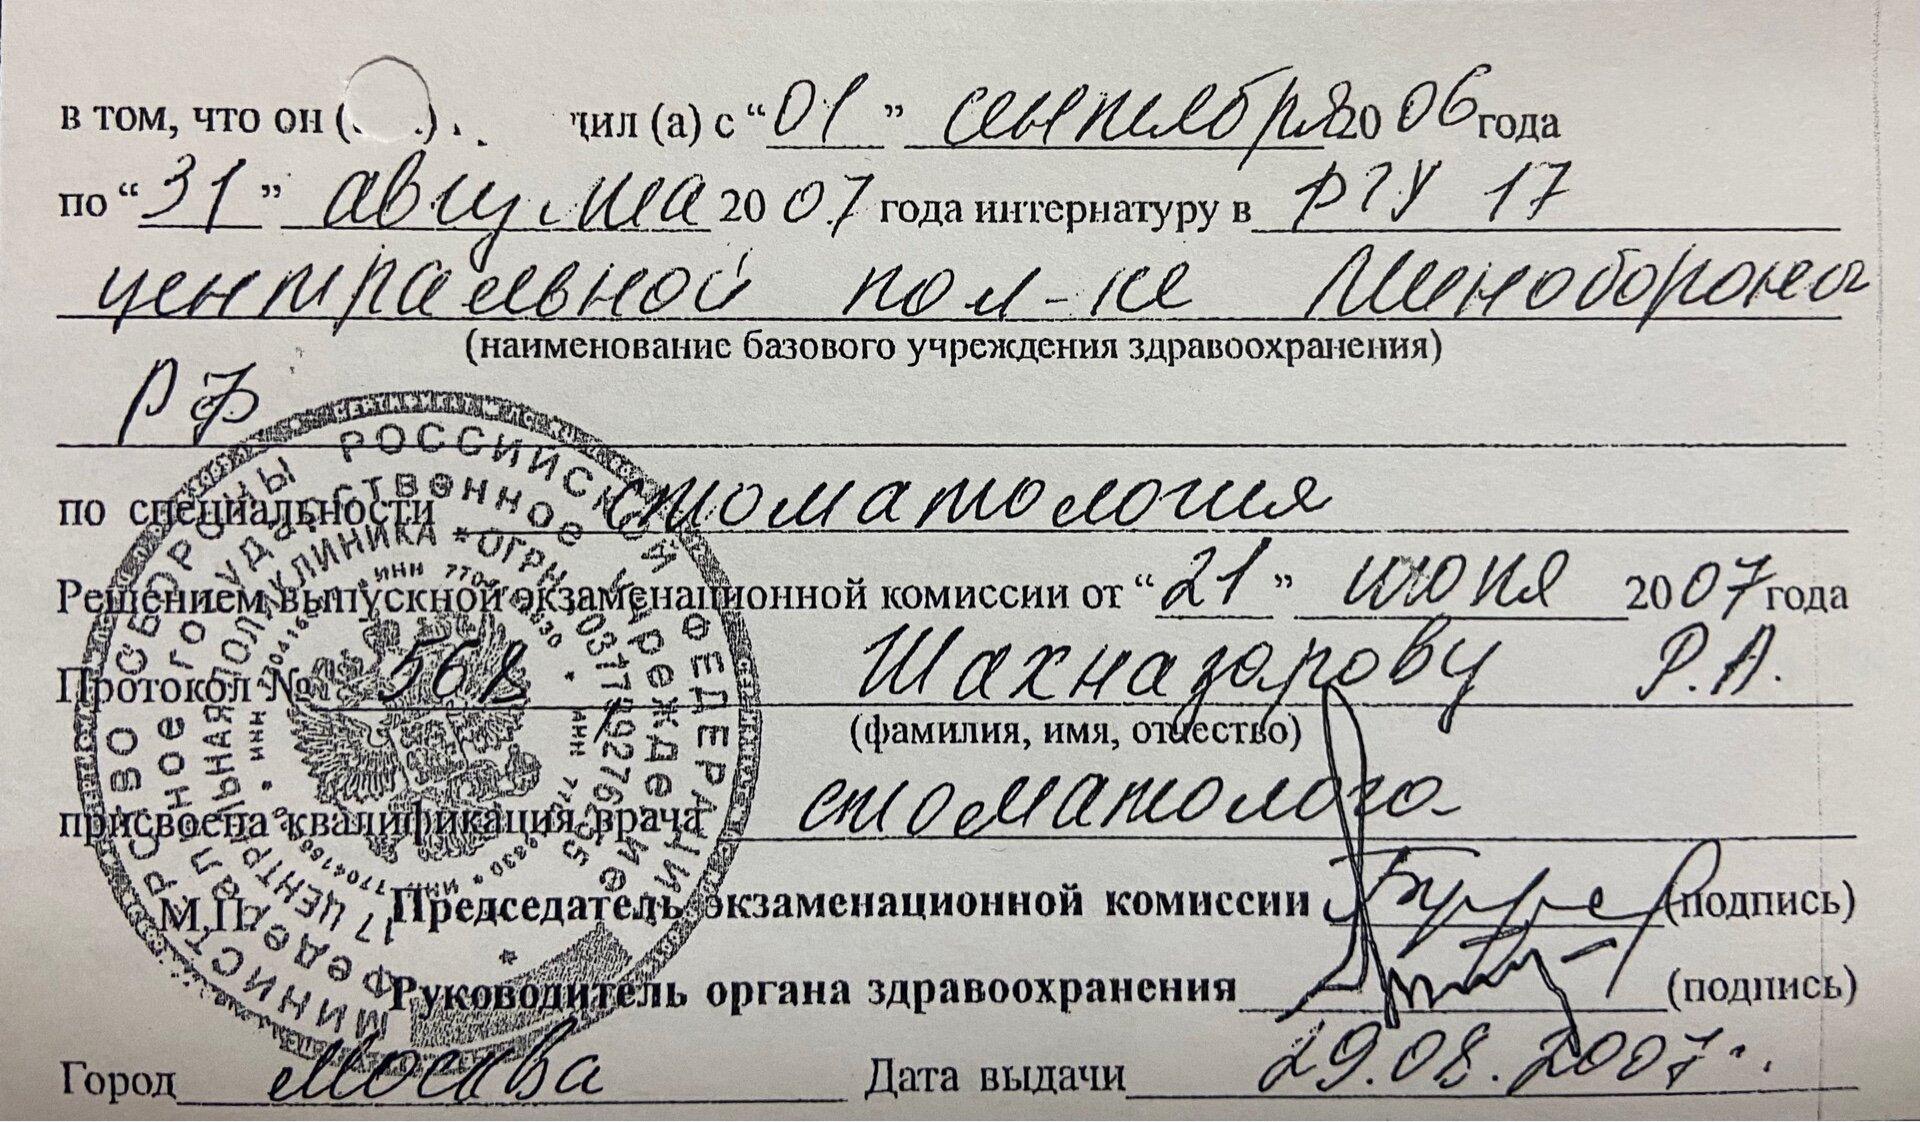 в том, что он ( ) дил (а) с “01” сентября 2006 года
по “31” августа 2007 года интернатуру в РГУ 17
центральной пол-ке Минобороны
(наименование базового учреждения здравоохранения)
РФ
по специальности стоматология
Решением выпускной экзаменационной комиссии от “21” июня 2007 года
Протокол № 568 Шахназарову Р.А.
(фамилия, имя, отчество)
присвоена квалификация врача стоматолога
М.П. Председатель экзаменационной комиссии (подпись)
Руководитель органа здравоохранения (подпись)
Город Москва Дата выдачи 29.08.2007г.
МИНИСТЕРСТВО ОБОРОНЫ РОССИЙСКОЙ ФЕДЕРАЦИИ
Федеральное государственное учреждение
17 ЦЕНТРАЛЬНАЯ ПОЛИКЛИНИКА * ОГРН